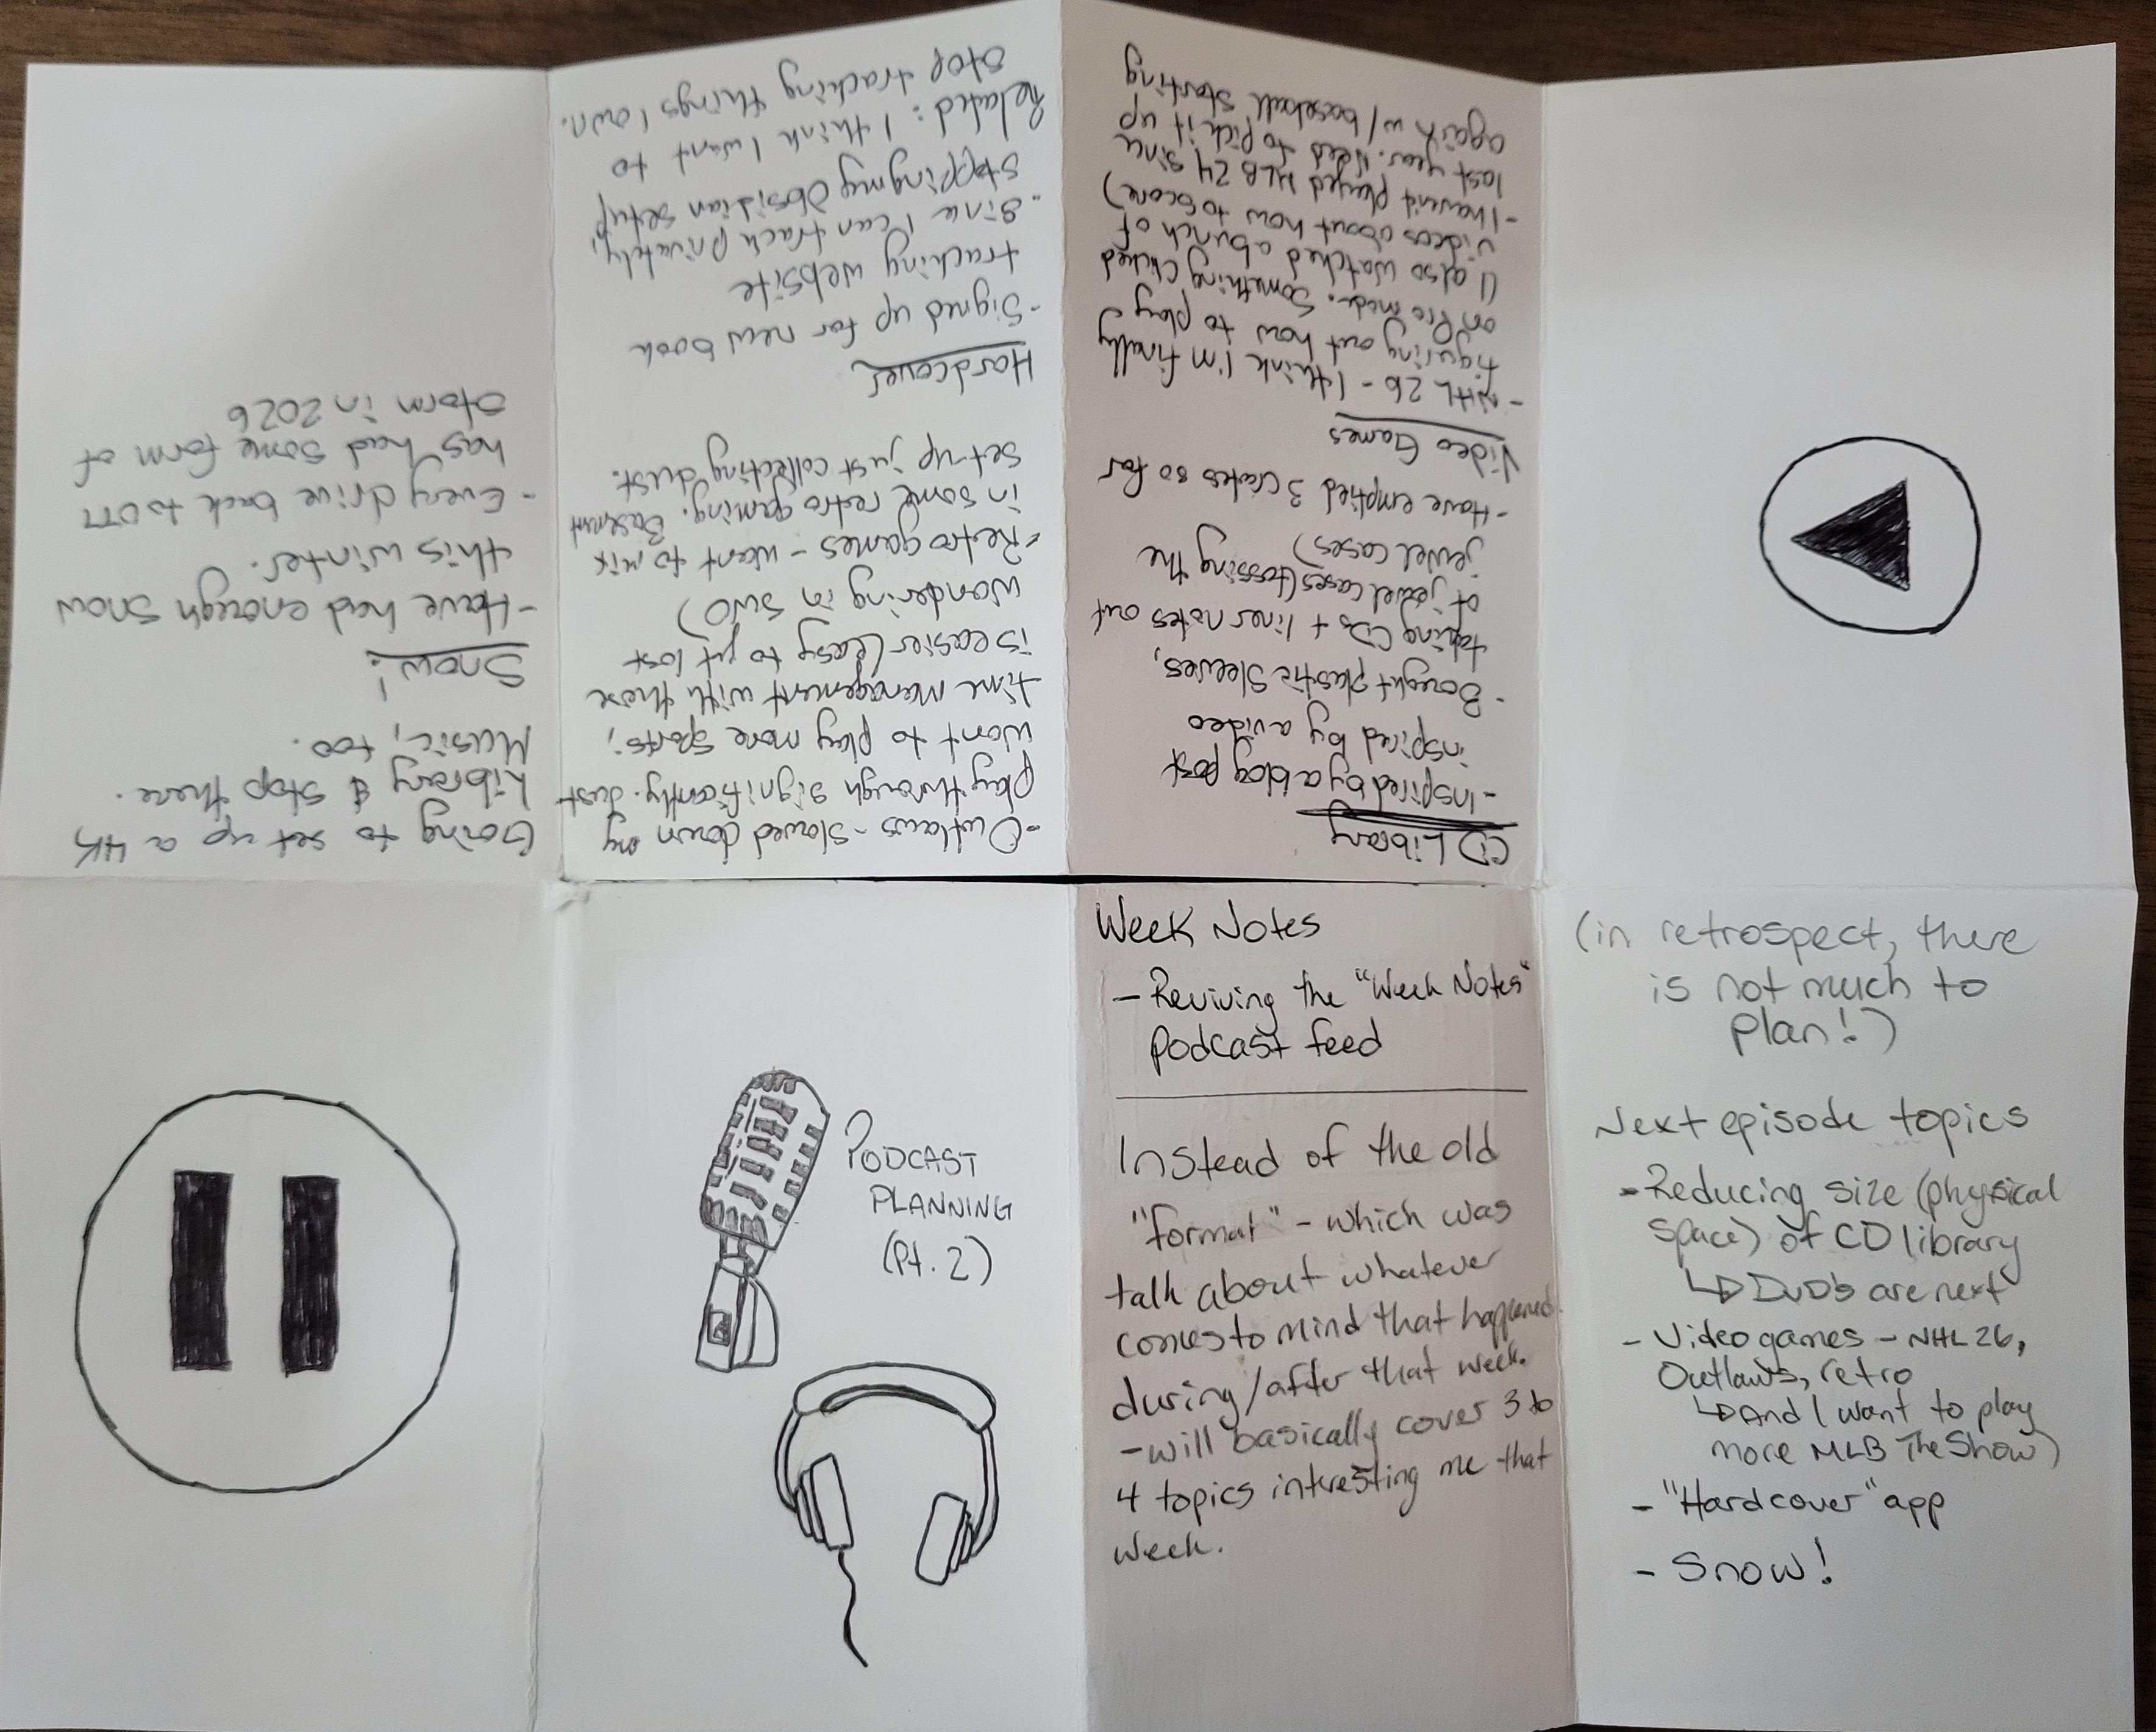 PODCAST
PLANNING
(Pt. 2)
Week Notes
- Reviving the "Week Notes"
podcast feed
Instead of the old
"format" - which was
talk about whatever
comes to mind that happened
during/after that week.
- will basically cover 3 to
4 topics interesting me that
week.
(in retrospect, there
is not much to
plan!)
Next episode topics
- Reducing size (physical
space) of CD library
DVDs are next
- Video games - NHL 26,
Outlaws, retro
And I want to play
more MLB The Show)
- "Hardcover" app
- Snow!
CD Library
- Inspired by a blog post
inspired by a video
- Bought plastic sleeves,
taking CDs + liner notes out
of jewel cases (tossing the
jewel cases)
- Have emptied 3 crates so far
Video Games
- NHL 26 - I think I'm finally
figuring out how to play
on Pro mode. Something clicked
(I also watched a bunch of
videos about how to score)
- I havent played MLB 24 since
last year. Need to pick it up
again w/ baseball starting
- Outlaws - slowed down my
playthrough significantly. Just
want to play more sports;
time management with those
is easier (easy to get lost
wandering in SWO)
- Retro games - want to mix
in some retro gaming. Basement
set-up just collecting dust.
Hardcover
- Signed up for new book
tracking website
- Since I can track privately,
stopping my Obsidian setup
Related: I think I want to
stop tracking things I own.
Going to set up a 4K
Library & stop there.
Music, too.
Snow!
- Have had enough snow
this winter.
- Every drive back to OTT
has had some form of
storm in 2026